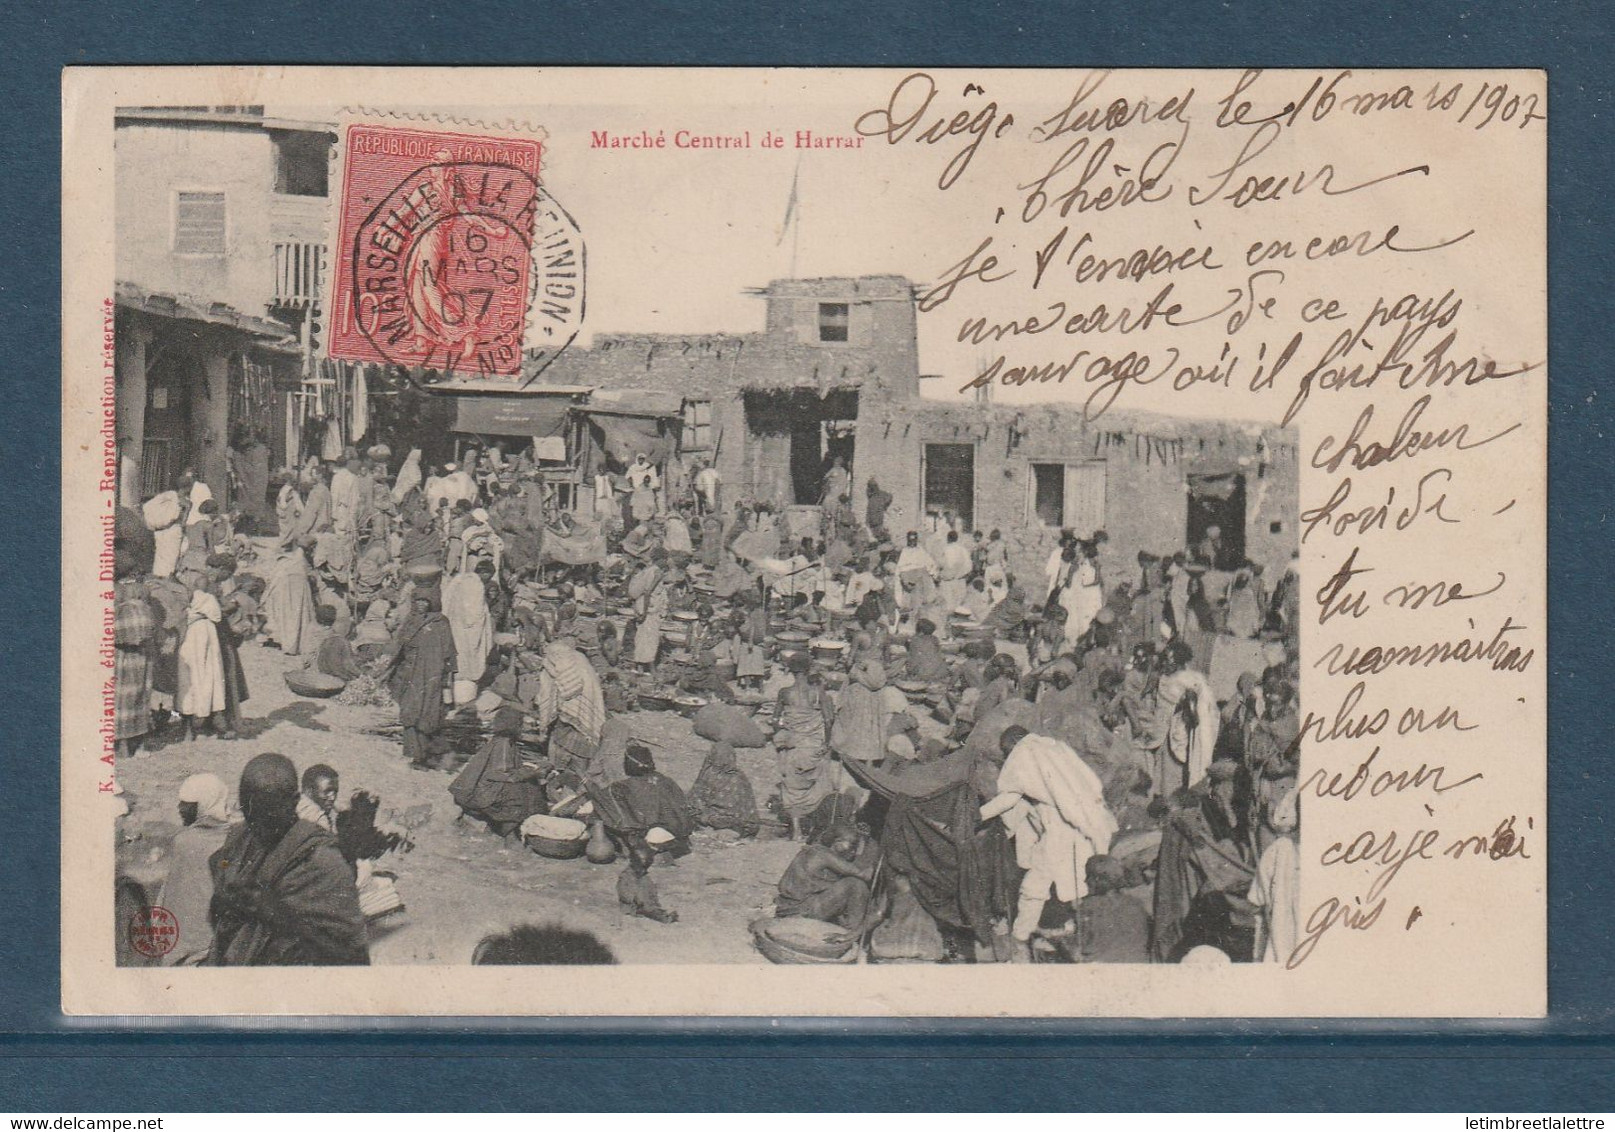 Marché Central de Harrar
RÉPUBLIQUE FRANÇAISE
10
POSTES
MARSEILLE A LA RÉUNION
16
MARS
07
Diégo Suarez le 16 mars 1907
Chère Soeur
je t'envoie encore
une carte de ce pays
sauvage où il fait une
chaleur
toride
tu me
reconnaitras
plus au
retour
car je méai
gris.
K. Arabiantz, éditeur à Djibouti - Reproduction réservée
letimbreetlalettre